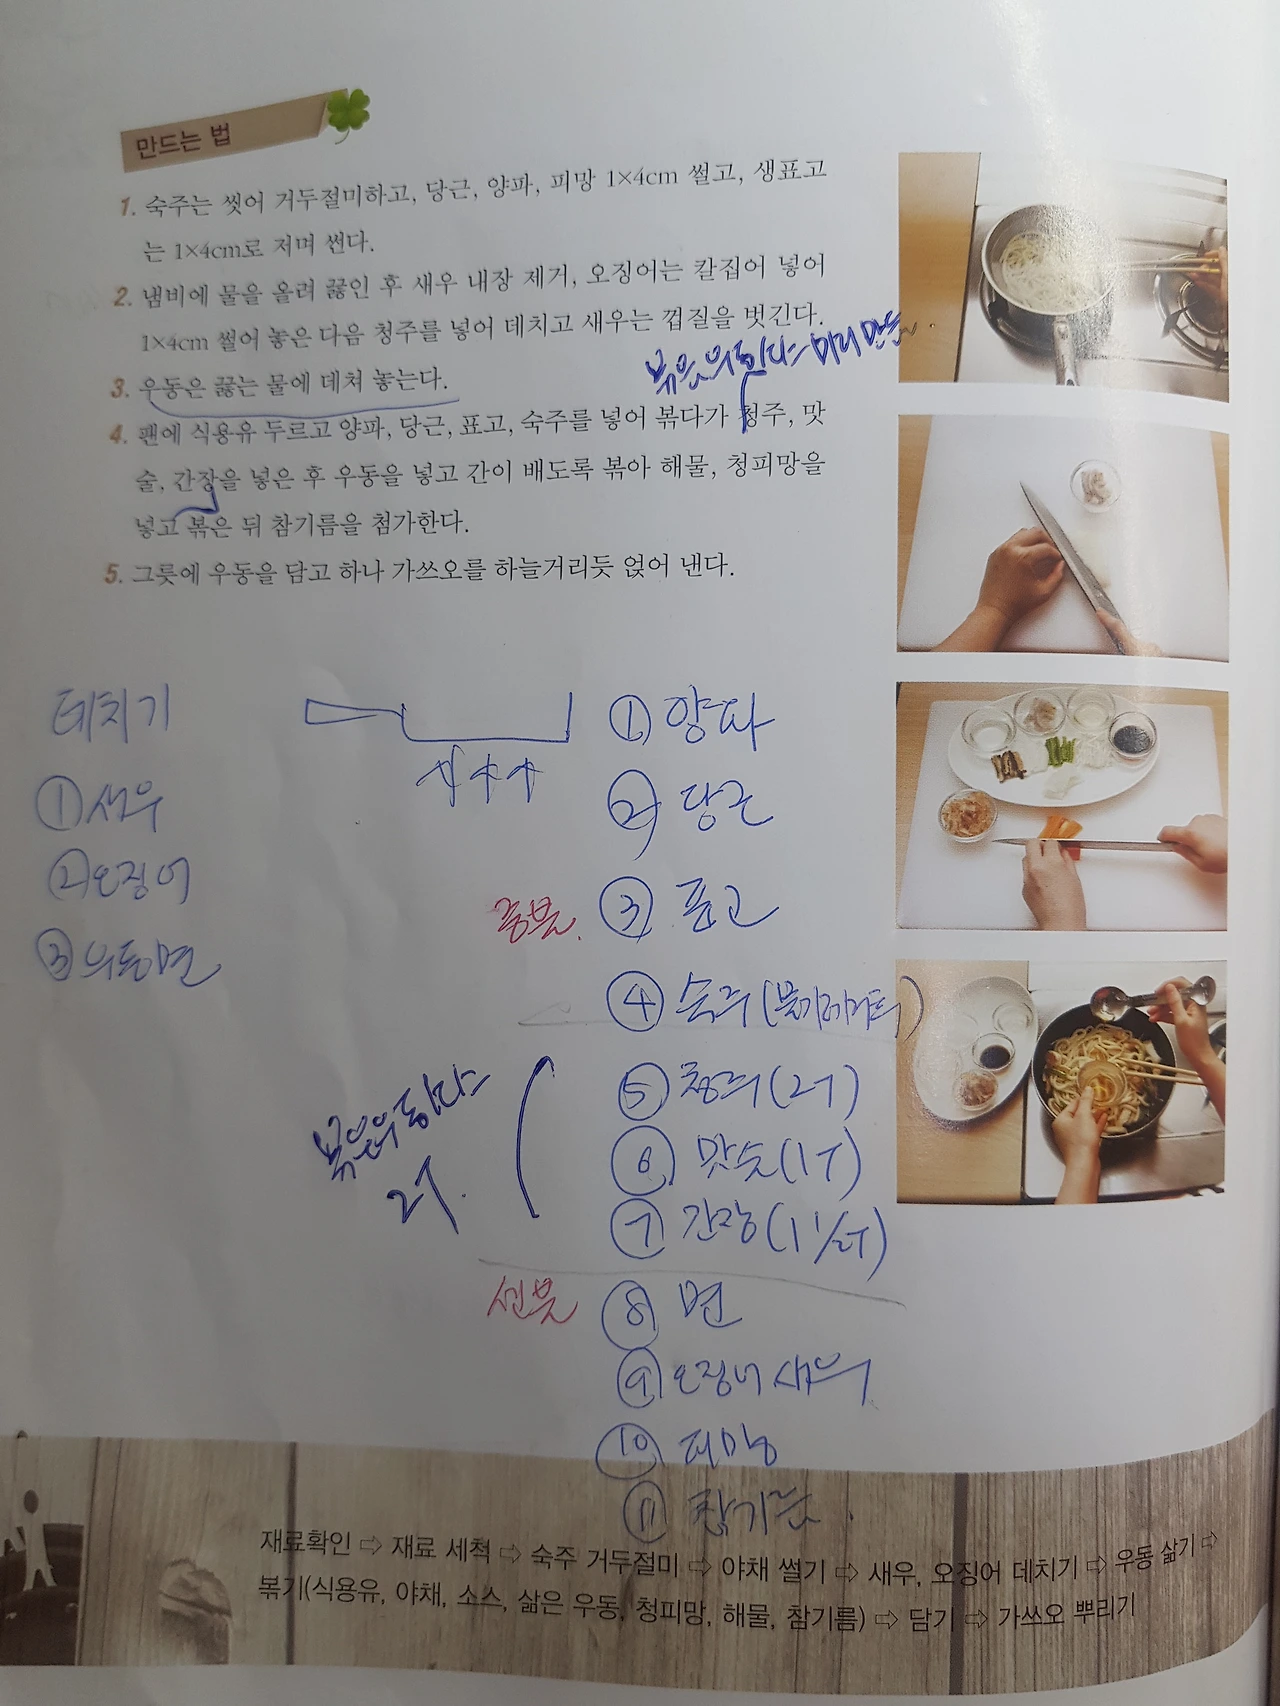 만드는 법
1. 숙주는 씻어 거두절미하고, 당근, 양파, 피망 1×4cm 썰고, 생표고
는 1×4cm로 저며 썬다.
2. 냄비에 물을 올려 끓인 후 새우 내장 제거, 오징어는 칼집어 넣어
1×4cm 썰어 놓은 다음 청주를 넣어 데치고 새우는 껍질을 벗긴다.
볶음우동다스 미리 만듬
3. 우동은 끓는 물에 데쳐 놓는다.
4. 팬에 식용유 두르고 양파, 당근, 표고, 숙주를 넣어 볶다가 청주, 맛
술, 간장을 넣은 후 우동을 넣고 간이 배도록 볶아 해물, 청피망을
넣고 볶은 뒤 참기름을 첨가한다.
5. 그릇에 우동을 담고 하나 가쓰오를 하늘거리듯 얹어 낸다.
데치기
① 새우
② 오징어
③ 우동면
① 양파
② 당근
중불. ③ 표고
④ 숙주
⑤ 청주(2T)
⑥ 맛술(1T)
⑦ 간장(1 1/2T)
2T.
센불 ⑧ 면
⑨ 오징어 새우
⑩ 피망
⑪ 참기름.
재료확인 ⇨ 재료 세척 ⇨ 숙주 거두절미 ⇨ 야채 썰기 ⇨ 새우, 오징어 데치기 ⇨ 우동 삶기 ⇨
볶기(식용유, 야채, 소스, 삶은 우동, 청피망, 해물, 참기름) ⇨ 담기 ⇨ 가쓰오 뿌리기